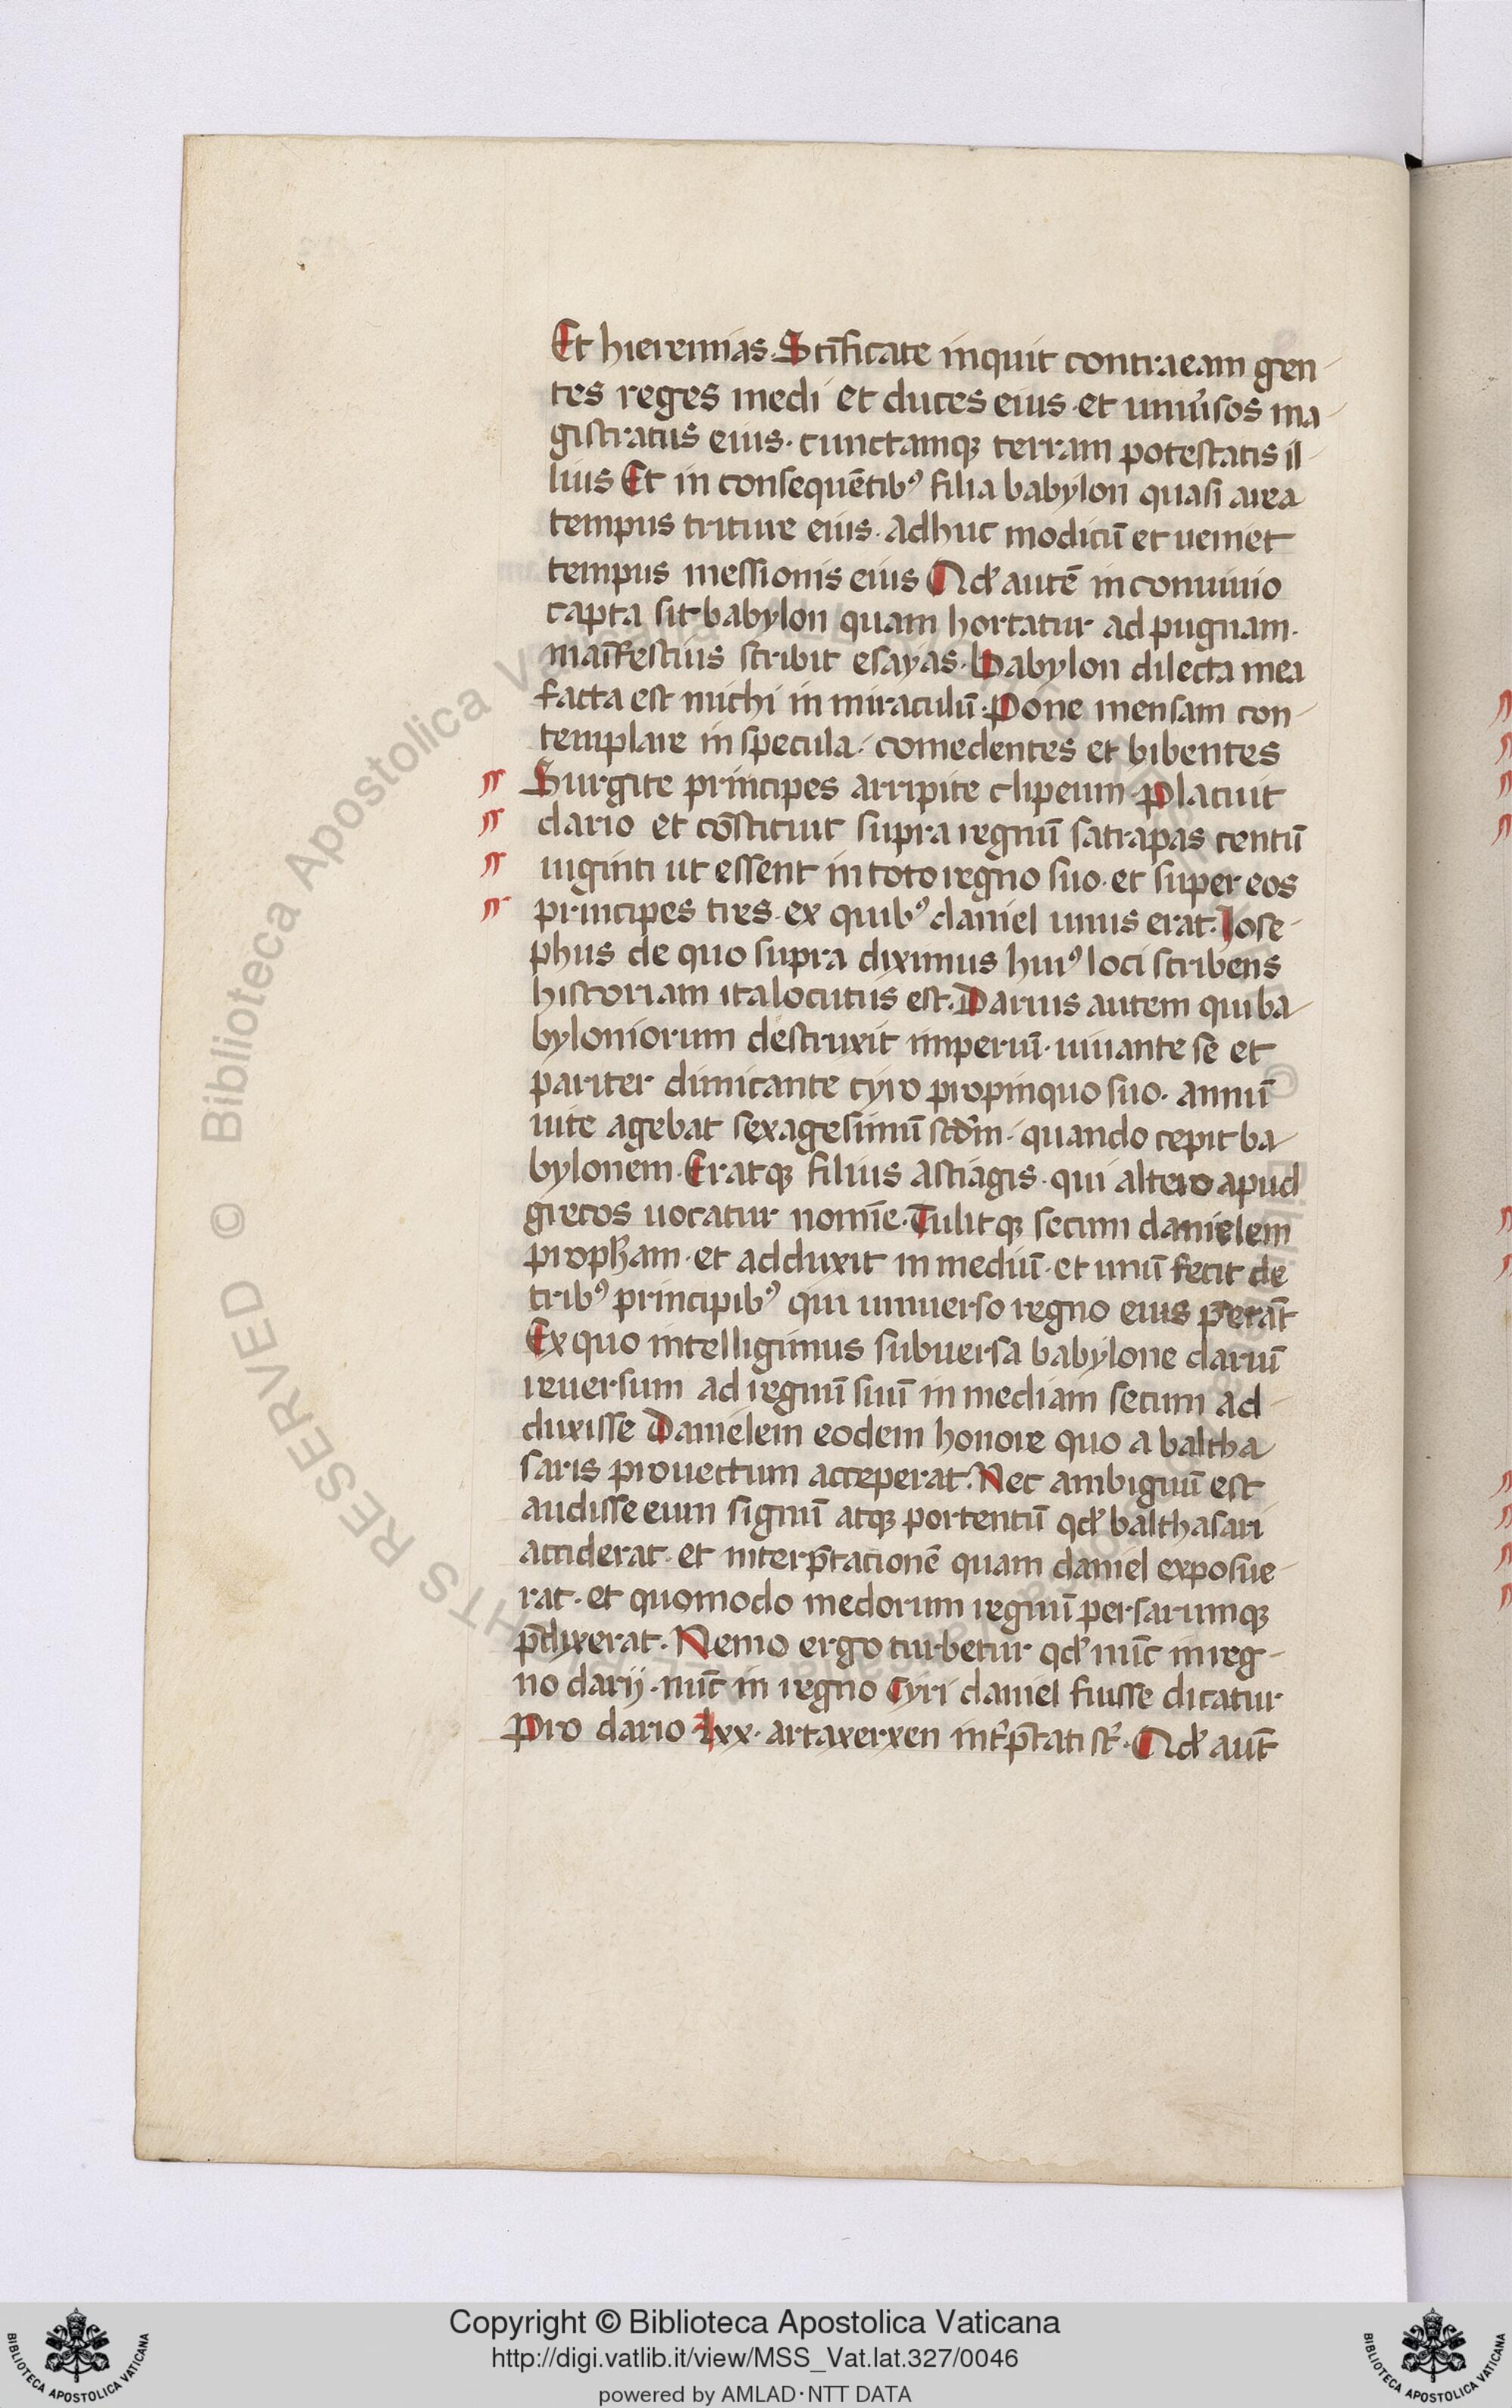 Et hieremias. Sc̄ificate inquit contra eam gen
tes reges medi et duces eius. et uniu̾sos ma
gistratus eius. cunctamqꝫ terram potestatis il
lius Et in consequētibꝰ filia babylon quasi area
tempus triture eius. adhuc modicū et ueniet
tempus messionis eius Qđ autē in conuiuio
capta sit babylon quam hortatur ad pugnam.
manifestius scribit esayas. Babylon dilecta mea
facta est michi in miraculū. Pone mensam con
templare in specula. comedentes et bibentes
Surgite principes arripite clipeum. Placuit
dario et cōstituit supra regnū satrapas centū
uiginti ut essent in toto regno suo. et super eos
principes tres. ex quibꝰ daniel unus erat. Iose
phus de quo supra diximus huiꝰ loci scribens
historiam ita locutus est. Darius autem qui ba
byloniorum destruxit imperiū. iuuante se et
pariter dimicante cyro propinquo suo. annū
uite agebat sexagesimū scd̾m. quando cepit ba
bylonem. Eratqꝫ filius astiagis. qui altero apud
grecos uocatur nomīe. Tulitqꝫ secum danielem
proph̄am. et adduxit in mediū. et unū fecit de
tribꝰ principibꝰ qui uniuerso regno eius p̄erāt
Ex quo intelligimus subuersa babylone dariū
reuersum ad regnū suū in mediam secum ad
duxisse Danielem eodem honore quo a baltha
saris prouectum acceperat. Nec ambiguū est
audisse eum signū atqꝫ portentū qđ balthasari
acciderat. et interp̄tationē quam daniel exposue
rat. et quomodo medorum regnū persarumqꝫ
p̄dixerat. Nemo ergo turbetur qđ nūc in reg
no darij. nūc in regno Cyri daniel fuisse dicatur
Pro dario lxx. artaxerxen int̾p̄tati st̄. Qđ aut̄
Copyright © Biblioteca Apostolica Vaticana
http://digi.vatlib.it/view/MSS_Vat.lat.327/0046
powered by AMLAD·NTT DATA